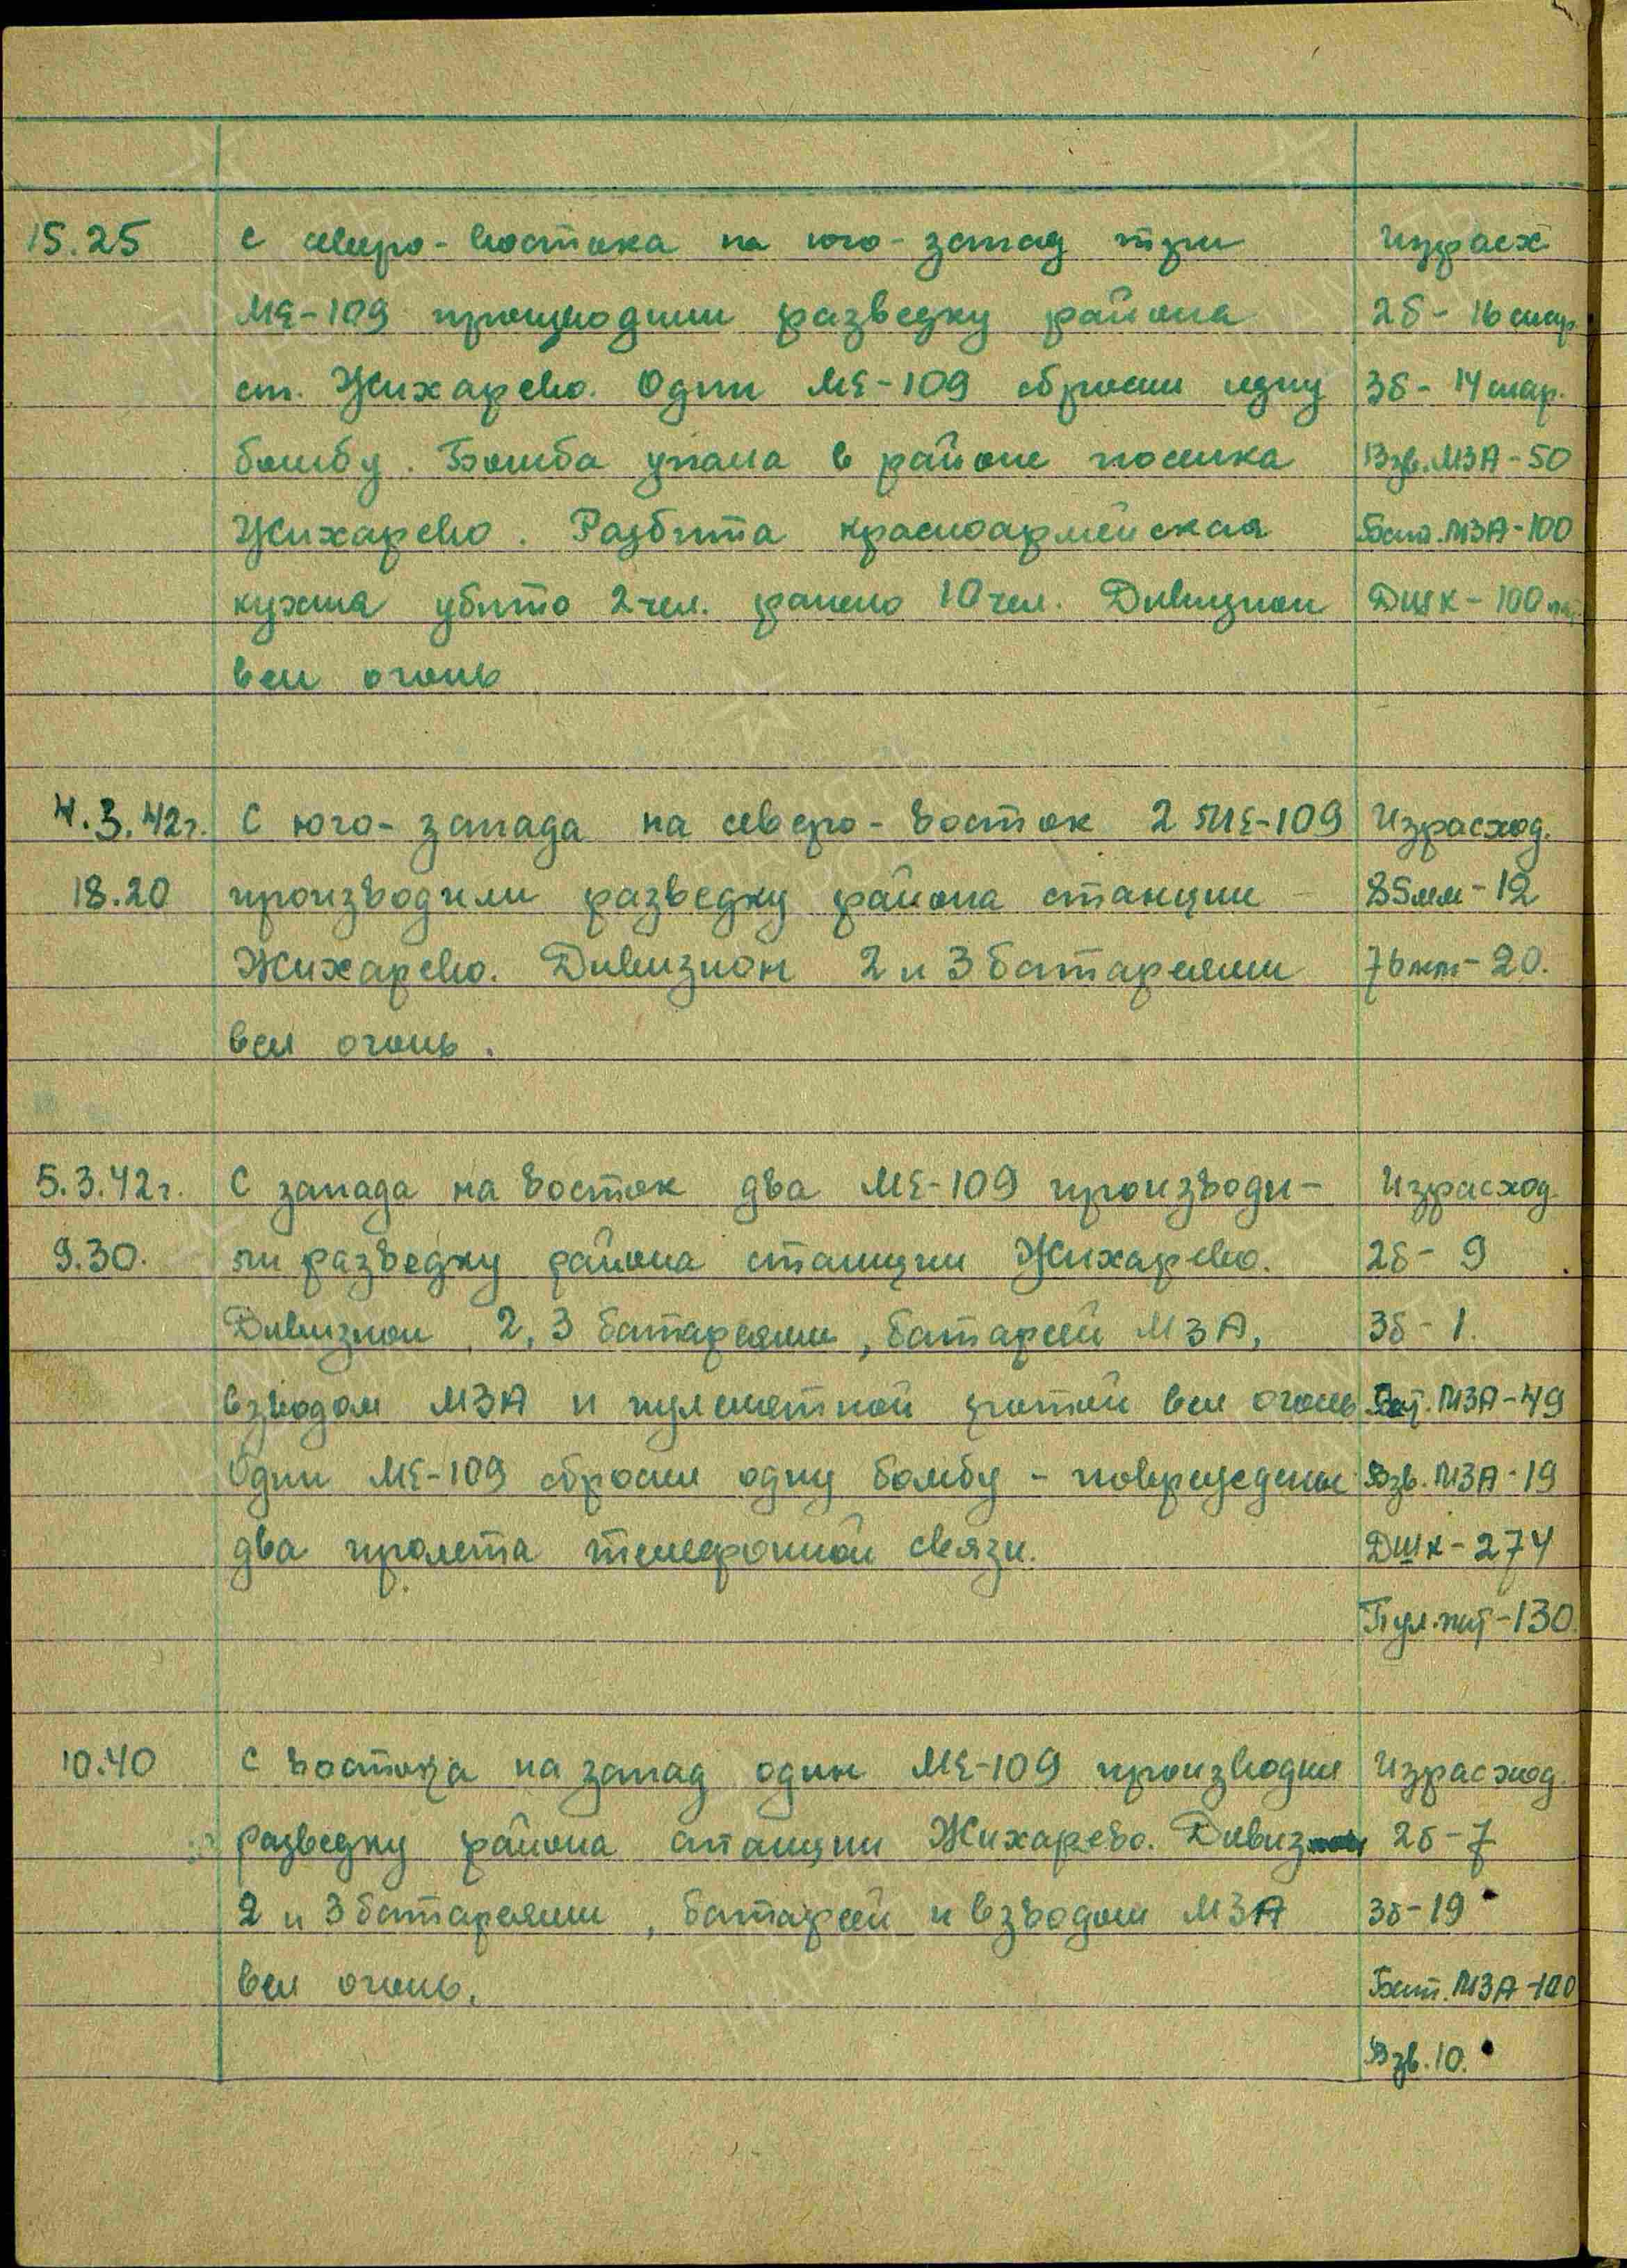 15.25 с северо-востока на юго-запад три Израсх
МЕ-109 производили разведку района 2б - 16 снар
ст. Жихарево. Один МЕ-109 сбросил одну 3б - 14 снар.
бомбу. Бомба упала в районе поселка Взв. МЗА - 50
Жихарево. Разбита красноармейская Бат. МЗА - 100
кухня убито 2 чел. ранено 10 чел. Дивизион ДШК - 100 пат
вел огонь
4.3.42г. С юго-запада на северо-восток 2 МЕ-109 Израсход.
18.20 производили разведку района станции 85мм - 12
Жихарево. Дивизион 2 и 3 батареями 76мм - 20.
вел огонь.
5.3.42г. С запада на восток два МЕ-109 производи- Израсход
9.30. ли разведку района станции Жихарево. 2б - 9
Дивизион, 2, 3 батареями, батареей МЗА, 3б - 1.
взводом МЗА и пулеметной ротой вел огонь Бат. МЗА - 49
Один МЕ-109 сбросил одну бомбу - повреждены Взв. МЗА - 19
два пролета телефонной связи. ДШК - 274
Пул. - 130
10.40 с востока на запад один МЕ-109 производил Израсход.
разведку района станции Жихарево. Дивизион 2б - 7
2 и 3 батареями, батареей и взводом МЗА 3б - 19
вел огонь. Бат. МЗА - 100
Взв. 10.